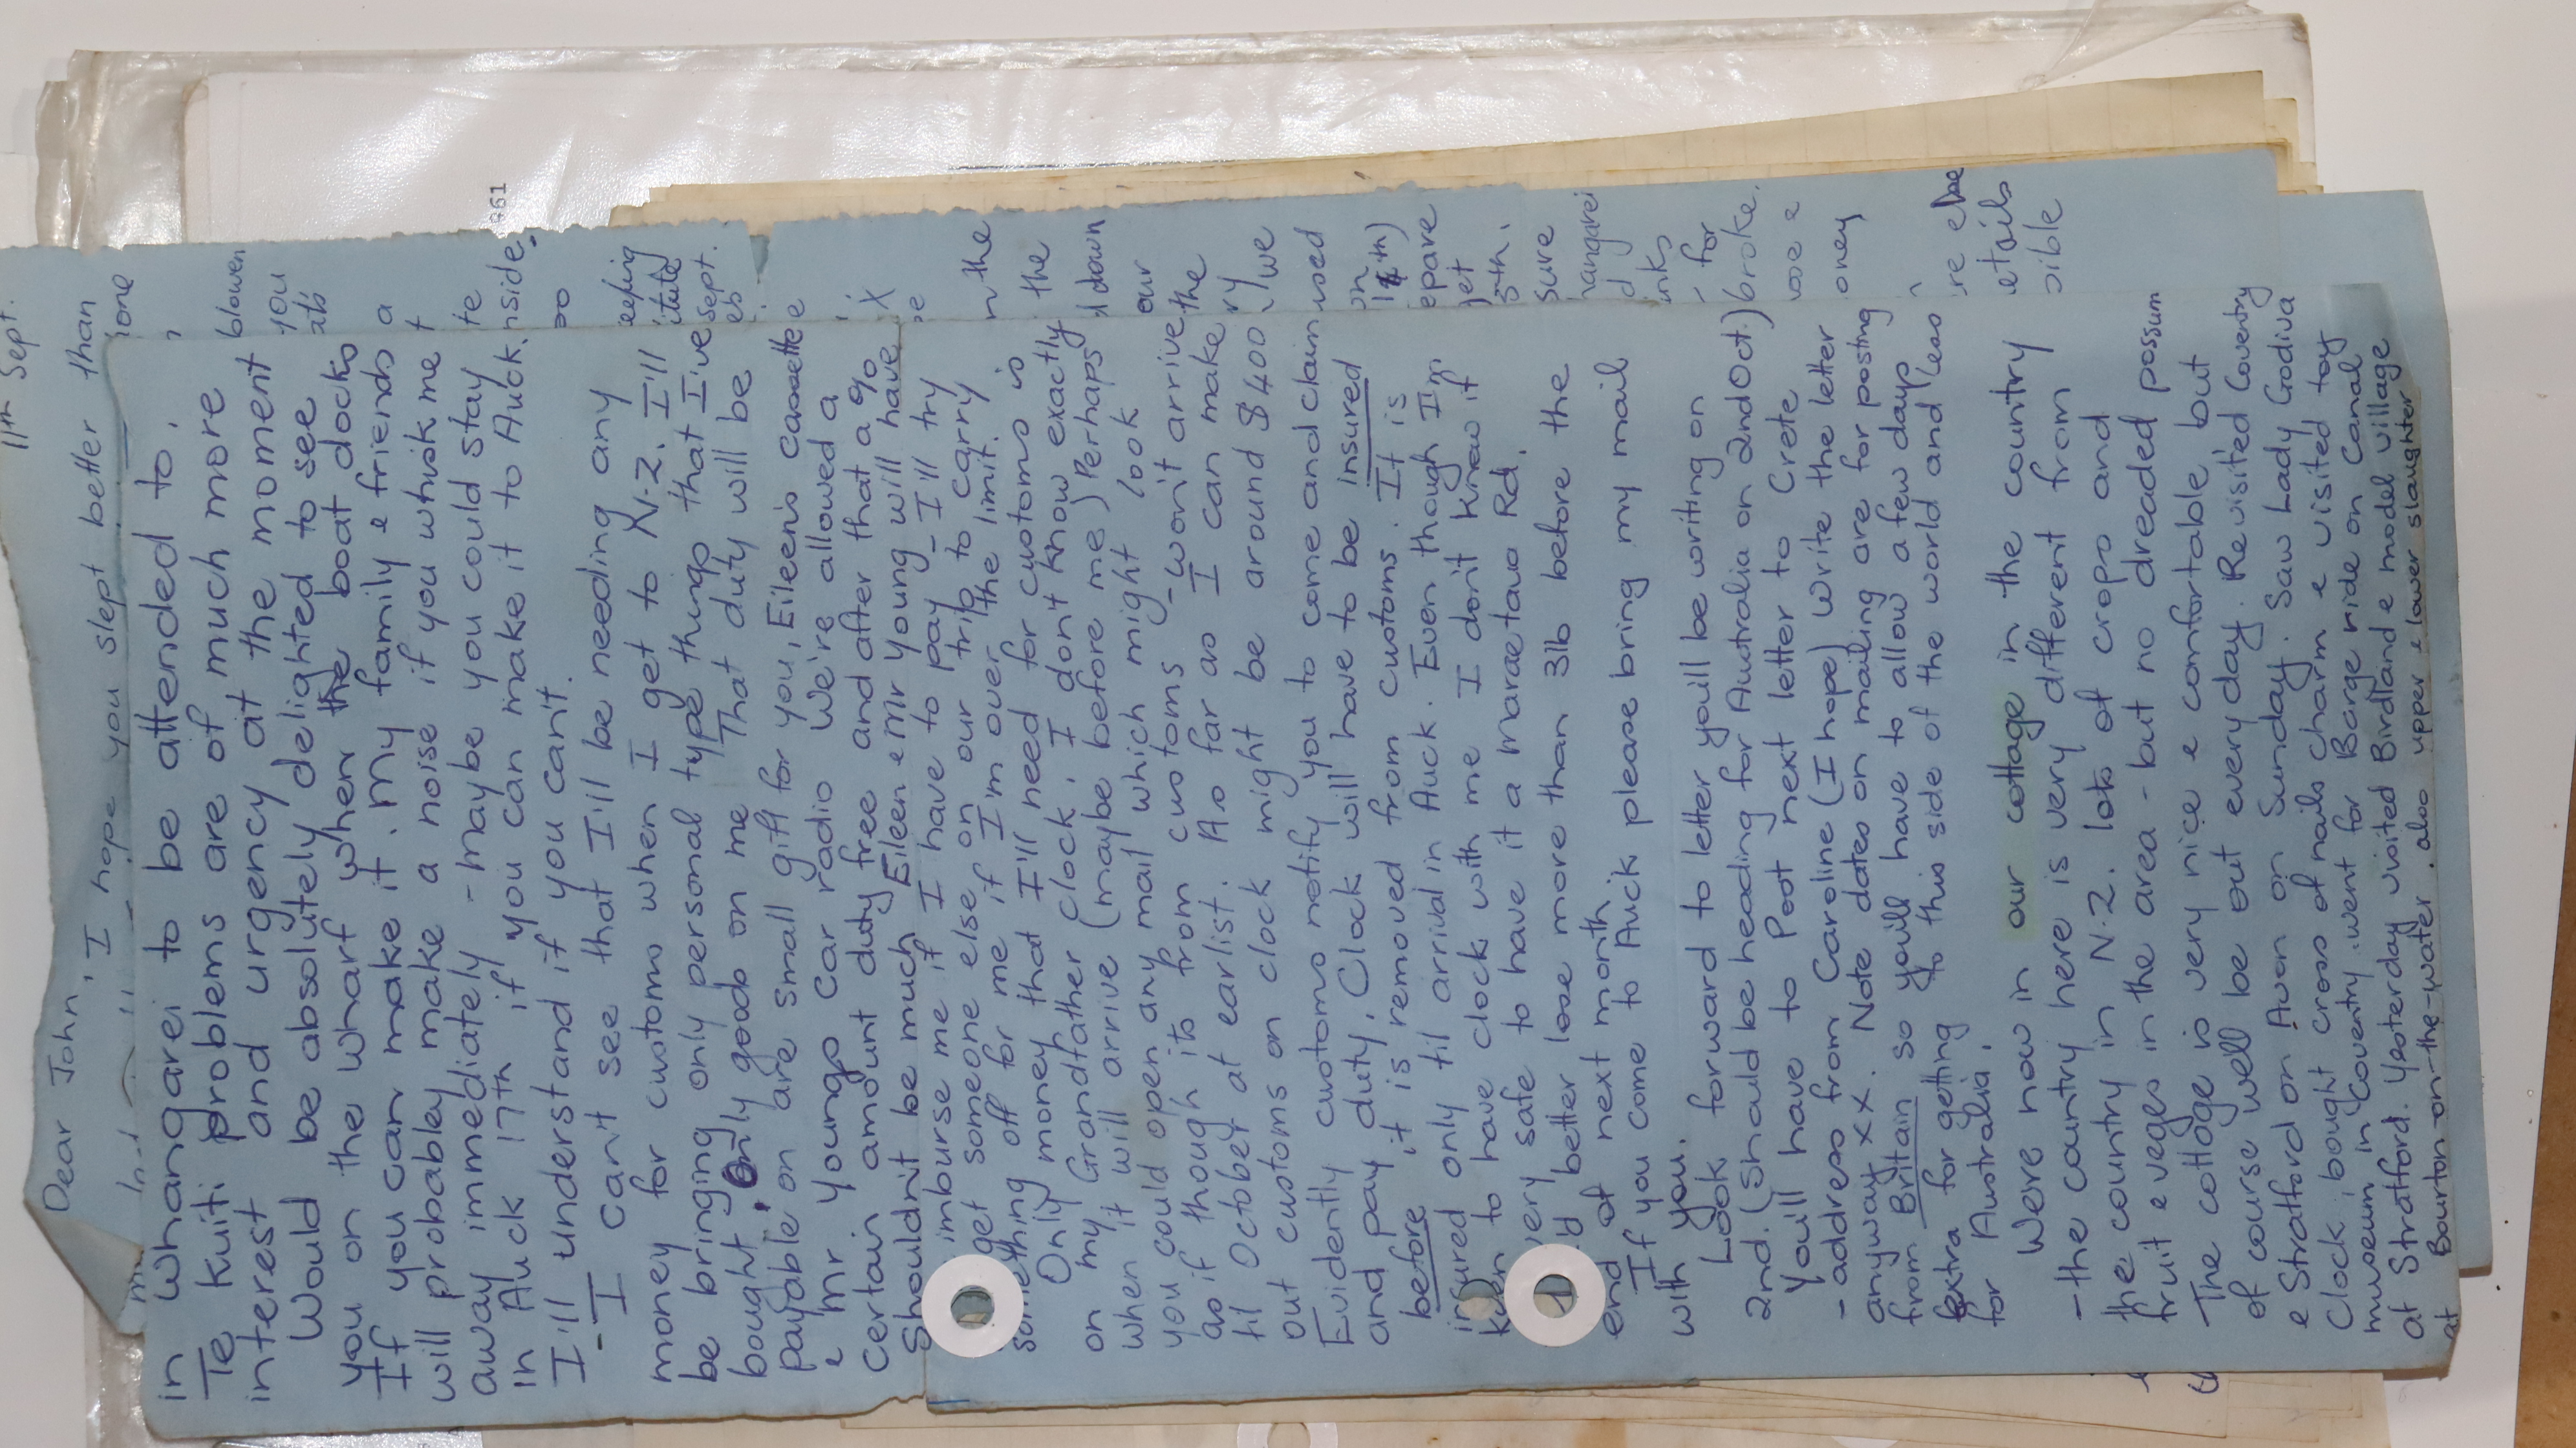 11th Sept.
Dear John, I hope you slept better than
in Whangarei to be attended to.
Te Kuiti problems are of much more
interest and urgency at the moment
Would be absolutely delighted to see
you on the wharf when the boat docks
If you can make it. My family & friends a
will probabley make a noise if you whisk me
away immediately - maybe you could stay
in Auck 17th if you can make it to Auck.
I'll understand if you can't.
- I can't see that I'll be needing any
money for customs when I get to N.Z. I'll
be bringing only personal type things that I've
bought. Only goods on me That duty will be
payable on are small gift for you, Eileen's cassette
& Mr Youngs car radio We're allowed a
certain amount duty free and after that a %
Shouldn't be much Eileen & Mr Young will have
imburse me if I have to pay - I'll try
get someone else on our trip to carry
something off for me if I'm over the limit.
Only money that I'll need for customs is
on my Grandfather clock. I don't know exactly
when it will arrive (maybe before me) Perhaps
you could open any mail which might look
as if though its from customs - won't arrive
til October at earlist. As far as I can make
out customs on clock might be around $400
Evidently customs notify you to come and claim
and pay duty. Clock will have to be insured
before it is removed from customs. It is
insured only til arrival in Auck. Even though I'm
keen to have clock with me I don't know if
very safe to have it a Maraetawa Rd.
better lose more than 3lb before the
end of next month
If you come to Auck please bring my mail
with you.
Look forward to letter you'll be writing on
2nd. (Should be heading for Australia on 2nd Oct.)
You'll have to Post next letter to Crete
- address from Caroline (I hope) Write the letter
anyway xx. Note dates on mailing are for posting
from Britain so you'll have to allow a few days
extra for getting to this side of the world and less
for Australia.
We're now in our cottage in the country
- the country here is very different from
the country in N.Z. lots of crops and
fruit & veges in the area - but no dreaded possum
The cottage is very nice & comfortable but
of course we'll be out every day. Revisited Coventry
& Stratford on Avon on Sunday. Saw Lady Godiva
Clock, bought cross of nails charm & visited toy
museum in Coventry. went for Barge ride on Canal
at Stratford. Yesterday visited Birdland & model village
at Bourton-on-the-water. also upper & lower slaughter
blowen
you
nside.
Sept.
the
the
down
our
the
we
epare
sure
hangarei
for
broke.
oney